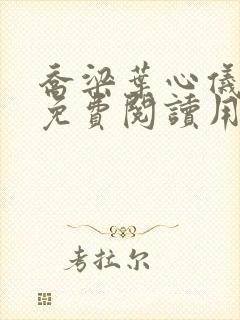 喬梁葉心儀
免費閱讀用
考拉尔